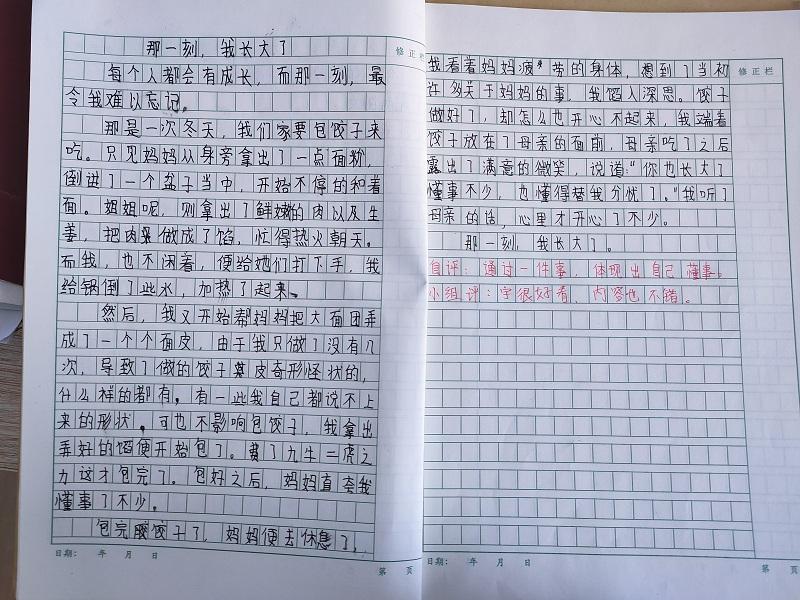 那一刻，我长大了
修正栏
每个人都会有成长，而那一刻，最
令我难以忘记。
那是一次冬天，我们家要包饺子来
吃。只见妈妈从身旁拿出了一点面粉，
倒进了一个盆子当中，开始不停的和着
面。姐姐呢，则拿出了鲜嫩的肉以及生
姜，把肉做成了馅，忙得热火朝天。
而我，也不闲着，便给她们打下手，我
给锅倒了些水，加热了起来。
然后，我又开始帮妈妈把大面团弄
成了一个个面皮，由于我只做了没有几
次，导致了做的饺子皮奇形怪状的，
什么样的都有，有一些我自己都说不上
来的形状。可也不影响包饺子，我拿出
弄好的馅便开始包了。费了九牛二虎之
力这才包完了。包好之后，妈妈直夸我
懂事了不少。
包完饺子了，妈妈便去休息了，
日期： 年 月 日
第 页
我看着妈妈疲带的身体，想到了当初
许多关于妈妈的事，我馅入深思。饺子
做好了，却怎么也开心不起来，我端着
饺子放在了母亲的面前，母亲吃了之后
露出了满意的微笑，说道："你也长大了
懂事不少，也懂得替我分忧了。"我听了
母亲的话，心里才开心了不少。
那一刻，我长大了。
自评：通过一件事，体现出自己懂事。
小组评：字很好看，内容也不错。
修正栏
日期： 年 月 日
第 页